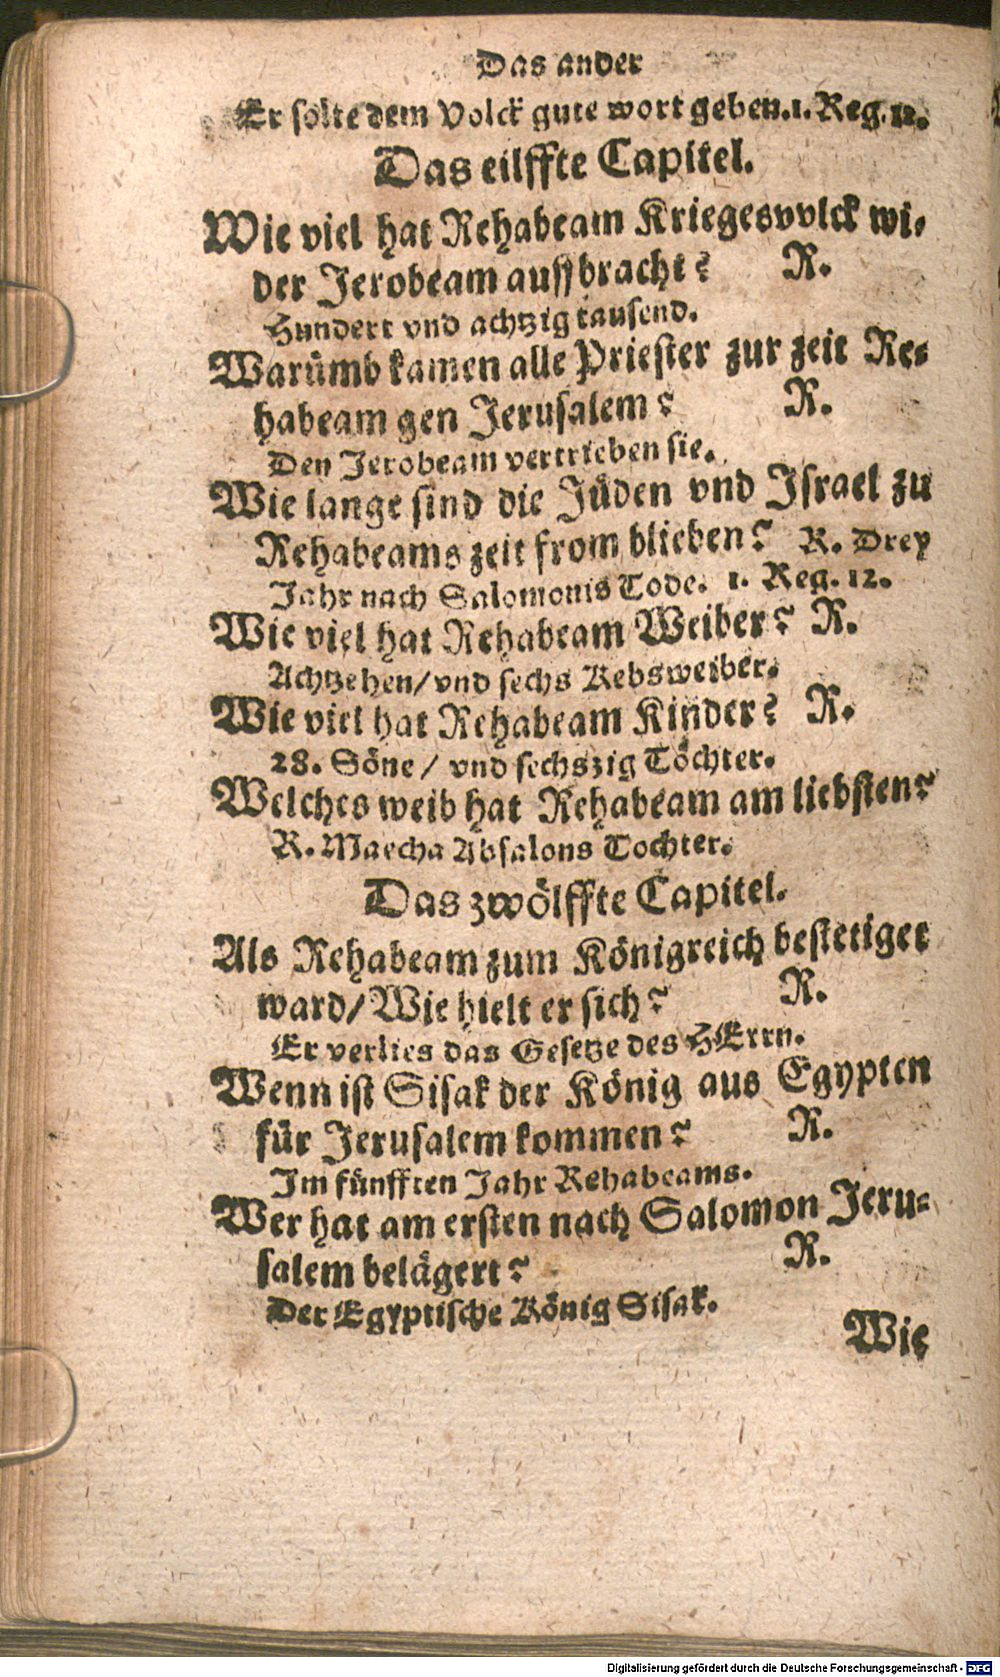 Das ander
Er solte dem Volck gute wort geben. 1. Reg. 12.
Das eilffte Capitel.
Wie viel hat Rehabeam Kriegesvolck wi-
der Jerobeam auffbracht? R.
Hundert vnd achtzig tausend.
Warümb kamen alle Priester zur zeit Re-
habeam gen Jerusalem? R.
Den Jerobeam vertrieben sie.
Wie lange sind die Jüden vnd Israel zu
Rehabeams zeit from blieben? R. Drey
Jahr nach Salomonis Tode. 1. Reg. 12.
Wie viel hat Rehabeam Weiber? R.
Achtzehen/ vnd sechs Kebsweiber.
Wie viel hat Rehabeam Kinder? R.
28. Söne/ vnd sechszig Töchter.
Welches weib hat Rehabeam am liebsten?
R. Maecha Absalons Tochter.
Das zwölffte Capitel.
Als Rehabeam zum Königreich bestetiget
ward/ Wie hielt er sich? R.
Er verlies das Gesetze des HErrn.
Wenn ist Sisak der König aus Egypten
für Jerusalem kommen? R.
Im fünfften Jahr Rehabeams.
Wer hat am ersten nach Salomon Jeru-
salem belägert? R.
Der Egyptische König Sisak.
Wie
Digitalisierung gefördert durch die Deutsche Forschungsgemeinschaft - DFG